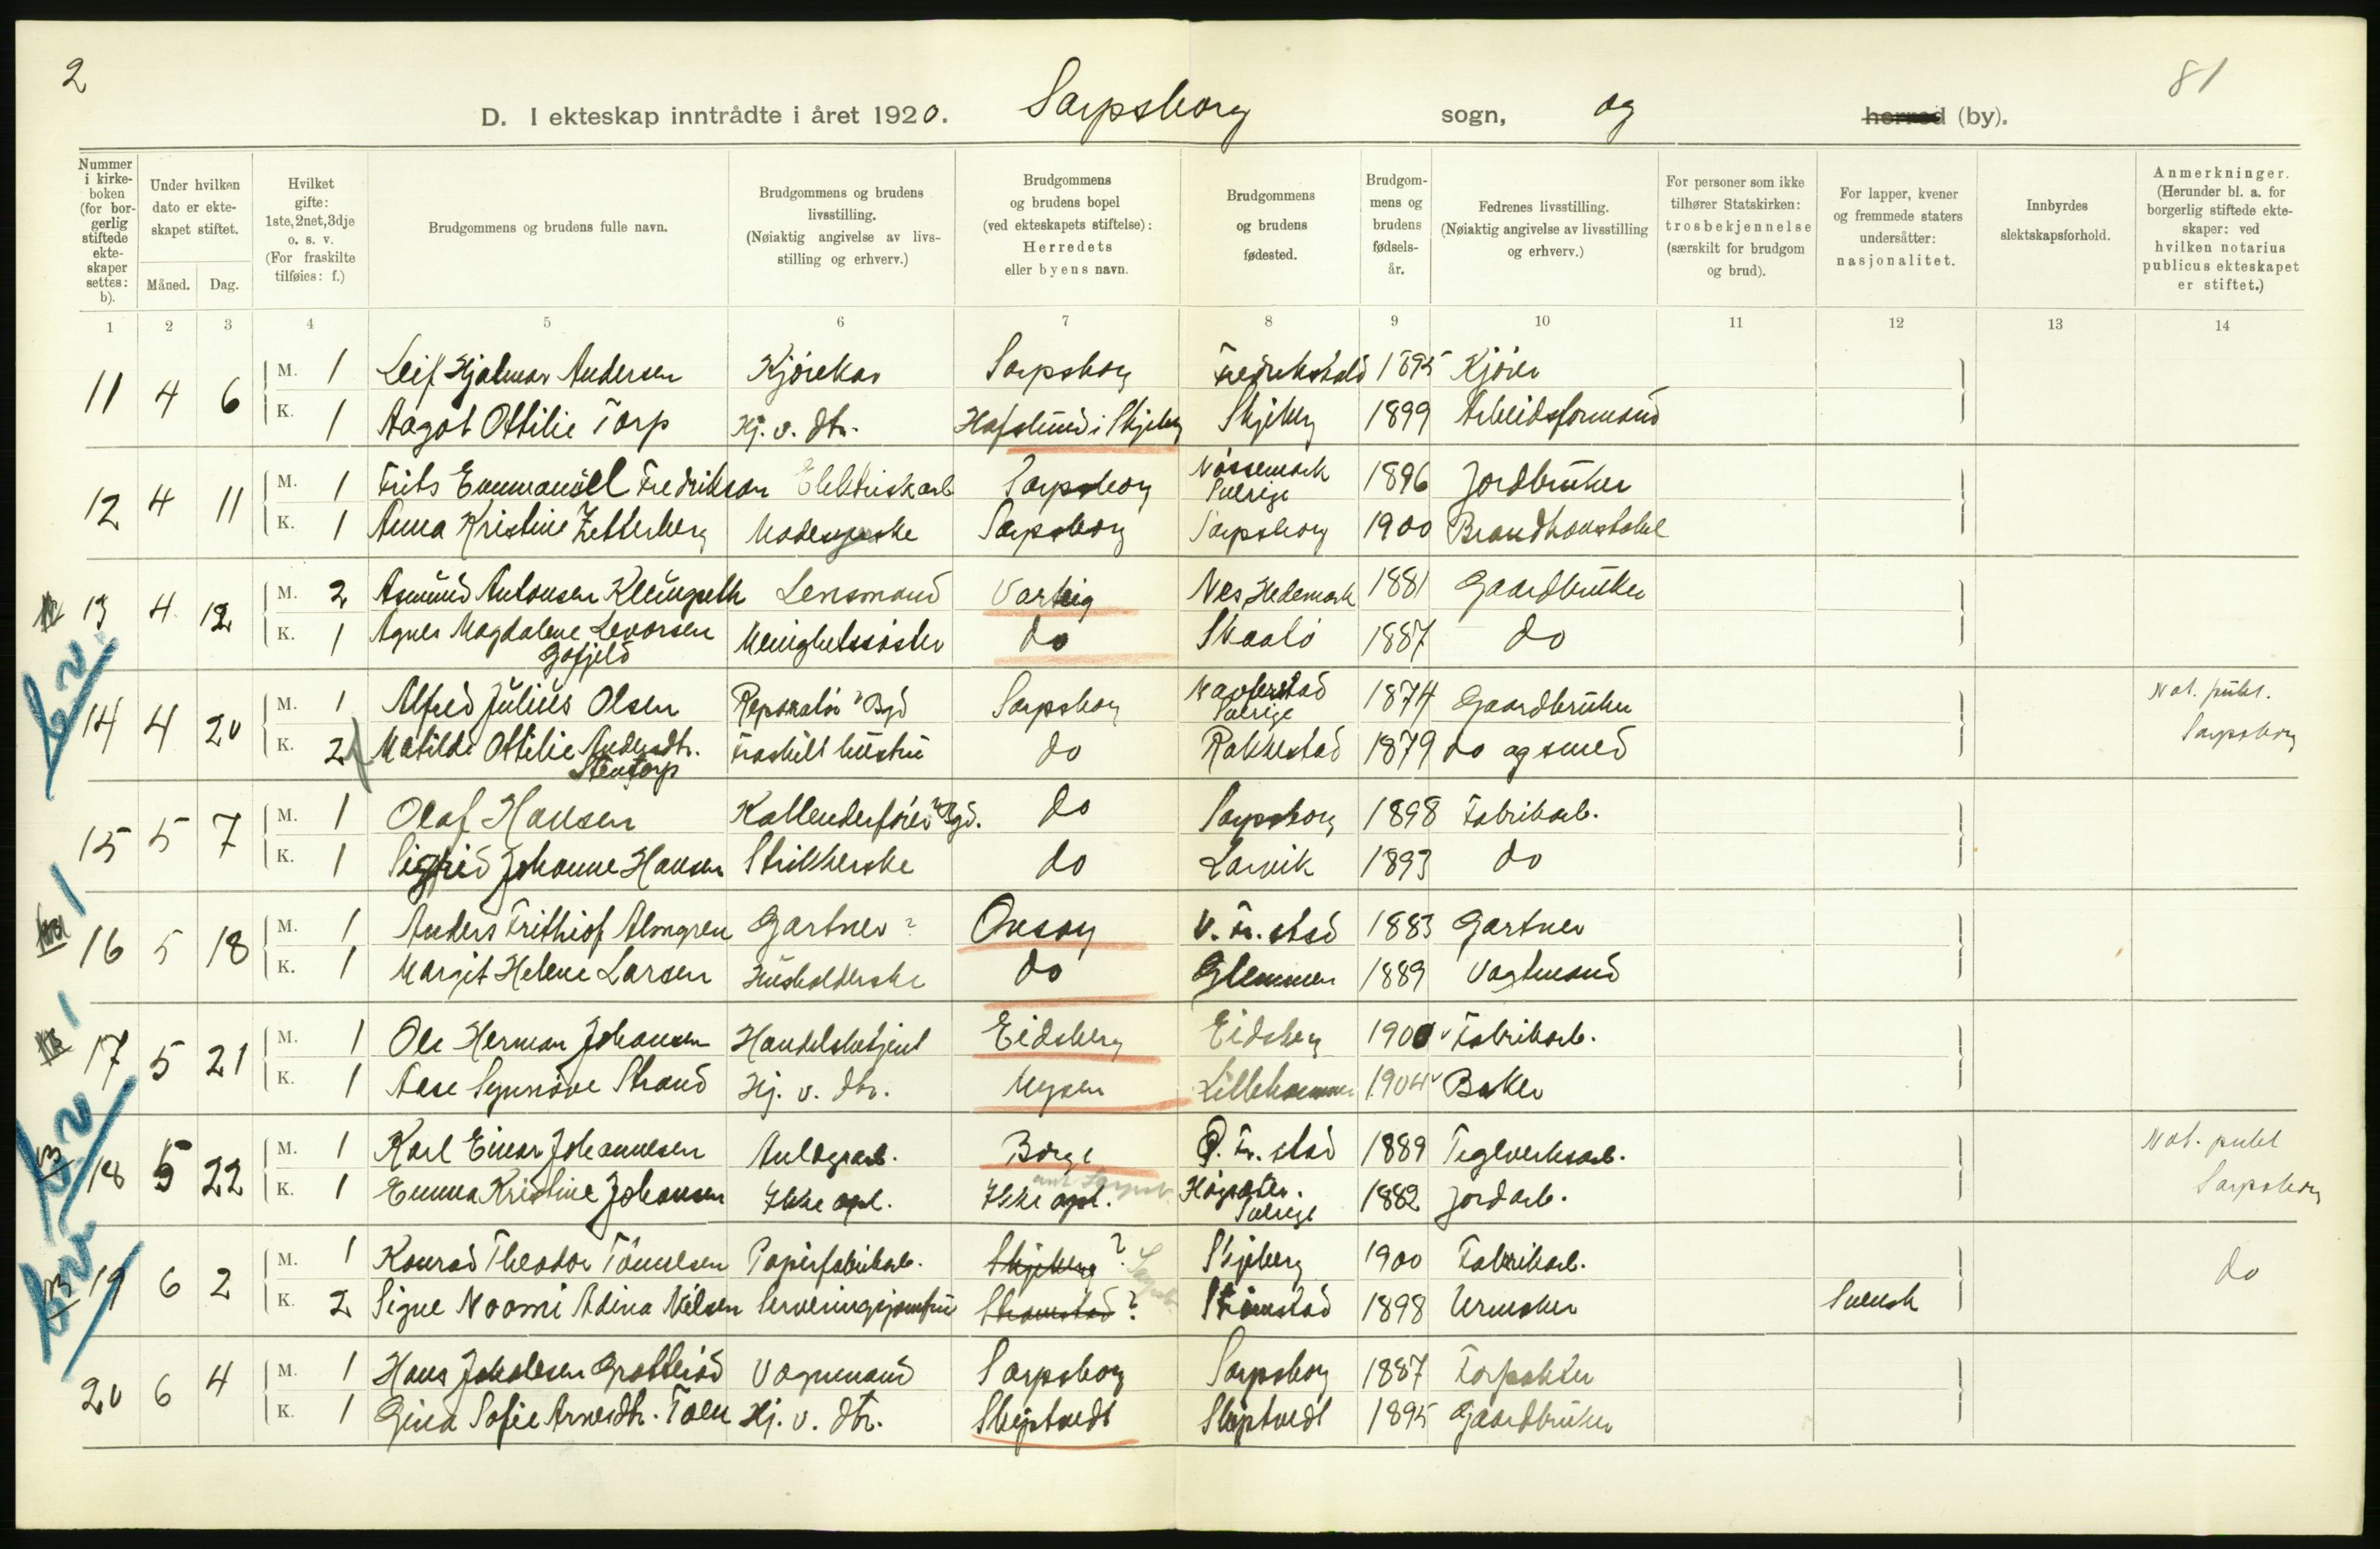 2
81
D. I ekteskap inntrådte i året 1920. Sarpsborg sogn, og herred (by).
Nummer i kirke-boken (for bor-gerlig stiftede ekte-skaper settes: b).
Under hvilken dato er ekte-skapet stiftet.
Måned. Dag.
Hvilket gifte: 1ste, 2net, 3dje o. s. v. (For fraskilte tilføies: f.)
Brudgommens og brudens fulle navn.
Brudgommens og brudens livsstilling. (Nøiaktig angivelse av livs-stilling og erhverv.)
Brudgommens og brudens bopel (ved ekteskapets stiftelse): Herredets eller byens navn.
Brudgommens og brudens fødested.
Brudgom-mens og brudens fødsels-år.
Fedrenes livsstilling. (Nøiaktig angivelse av livsstilling og erhverv.)
For personer som ikke tilhører Statskirken: trosbekjennelse (særskilt for brudgom og brud).
For lapper, kvener og fremmede staters undersåtter: nasjonalitet.
Innbyrdes slektskapsforhold.
Anmerkninger. (Herunder bl. a. for borgerlig stiftede ekte-skaper: ved hvilken notarius publicus ekteskapet er stiftet.)
1 2 3 4 5 6 7 8 9 10 11 12 13 14
11 4 6 M. 1 Leif Hjalmar Andersen Kjørekar Sarpsborg Fredrikstad 1895 Kjører
K. 1 Aagot Ottilie Torp Hj. v. dtr. Hafslund i Skjeberg Skjeberg 1899 Arbeidsformand
12 4 11 M. 1 Frits Emmanuel Fredrikson Elektriskarb Sarpsborg Nössemark Sverige 1896 Jordbruker
K. 1 Anna Kristine Zetterberg Modesyerske Sarpsborg Sarpsborg 1900 Brandkonstabel
13 4 12 M. 2 Asmund Antonsen Lensmand Varteig Nes, Hedemark 1881 Gaardbruker
K. 1 Agnes Magdalene Levorsen Gofjeld Menighetssøster do Skaatø 1887 do
b v
14 4 20 M. 1 Alfred Julius Olsen Reparatør Sarpsborg Naverstad Sverige 1874 Gaardbruker Not. publ.
K. 2 Matilde Ottilie Andersdtr. Stentorp Fraskilt hustru do Rakkestad 1879 do og smed Sarpsborg
15 5 7 M. 1 Olaf Hansen Kallenderfører do Sarpsborg 1898 Fabrikarb.
K. 1 Sigfrid Johanne Hansen Strikkerske do Larvik 1893 do
16 5 18 M. 1 Anders Frithiof Almgren Gartner ? Onsøy V. Fr. stad 1883 Gartner
K. 1 Margit Helene Larsen Husholderske do Glemmen 1889 Vagtmand
17 5 21 M. 1 Ole Herman Johansen Handelsbetjent Eidsberg Eidsberg 1900 Fabrikarb.
K. 1 Aase Synnøve Strand Hj. v. dtr. Mysen Lillehammer 1904 Baker
b v
18 5 22 M. 1 Karl Einar Johannesen Anlegsarb. Borge Ø. Fr. stad 1889 Teglverksarb. Not. publ
K. 1 Emma Kristine Johansen Ikke opl. Ikke opl. Sverige 1882 Jordarb. Sarpsborg
b v
19 6 2 M. 1 Konrad Theodor Tønnesen Papirfabrikarb. Skjeberg ? Skjeberg 1900 Fabrikarb. do
K. 2 Signe Noomi Adina Nilsen Serveringsjomfru Strømstad ? Strömstad 1898 Urmaker Svensk
20 6 4 M. 1 Hans Johalesen Vognmand Sarpsborg Sarpsborg 1887 Forpakter
K. 1 Gina Sofie Arnesdtr. Toen Hj. v. dtr. Skiptvedt Skiptvedt 1895 Gaardbruker